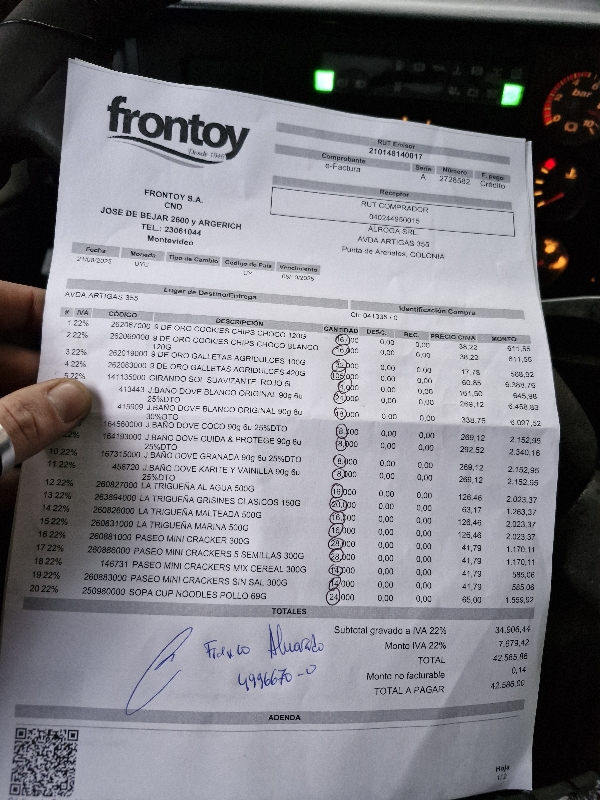 frontoy
Desde 1940
RUT Emisor
210148140017
Comprobante Serie Número F. pago
e-Factura A 2728582 Crédito
Receptor
RUT COMPRADOR
040244950015
ALROGA SRL
AVDA ARTIGAS 355
Punta de Arenales, COLONIA
FRONTOY S.A.
CND
JOSE DE BEJAR 2600 y ARGERICH
TEL.: 23061044
Montevideo
Fecha Moneda Tipo de Cambio Código de País Vencimiento
UYU UY
Lugar de Destino/Entrega Identificación Compra
AVDA ARTIGAS 355
# IVA CÓDIGO DESCRIPCIÓN CANTIDAD DESC. REC. PRECIO C/IVA MONTO
1 22% 262087000 9 DE ORO COOKIES CHIPS CHOCO 120G 16,000 0,00 0,00 38,22 611,55
2 22% 262089000 9 DE ORO COOKIES CHIPS CHOCO BLANCO 120G 16,000 0,00 0,00 38,22 611,55
3 22% 262019000 9 DE ORO GALLETAS AGRIDULCES 100G 0,00 0,00 17,78 568,92
4 22% 262083000 9 DE ORO GALLETAS AGRIDULCES 420G 0,00 0,00 60,85
5 22% 141135000 GIRANDO SOL SUAVIZANTE ROJO 5l 0,00 0,00 645,98
413443 J.BAÑO DOVE BLANCO ORIGINAL 90g 6u 25%DTO 24,000 0,00 0,00 269,12
415909 J.BAÑO DOVE BLANCO ORIGINAL 90g 6u 30%DTO 18,000 0,00 0,00 338,75 6.097,52
164560000 J.BAÑO DOVE COCO 90g 6u 25%DTO 8,000 0,00 0,00 269,12 2.152,95
22% 164193000 J.BAÑO DOVE CUIDA & PROTEGE 90g 6u 25%DTO 8,000 0,00 0,00 292,52 2.340,16
10 22% 167315000 J.BAÑO DOVE GRANADA 90g 6u 25%DTO 8,000 0,00 0,00 269,12 2.152,95
11 22% 458720 J.BAÑO DOVE KARITE Y VAINILLA 90g 6u 25%DTO 8,000 0,00 0,00 269,12 2.152,95
12 22% 260827000 LA TRIGUEÑA AL AGUA 500G 16,000 0,00 0,00 126,46 2.023,37
13 22% 263894000 LA TRIGUEÑA GRISINES CLASICOS 150G 20,000 0,00 0,00 63,17 1.263,37
14 22% 260826000 LA TRIGUEÑA MALTEADA 500G 16,000 0,00 0,00 126,46 2.023,37
15 22% 260831000 LA TRIGUEÑA MARINA 500G 16,000 0,00 0,00 126,46 2.023,37
16 22% 260881000 PASEO MINI CRACKER 300G 28,000 0,00 0,00 41,79 1.170,11
17 22% 260886000 PASEO MINI CRACKERS 5 SEMILLAS 300G 28,000 0,00 0,00 41,79 1.170,11
18 22% 146731 PASEO MINI CRACKERS MIX CEREAL 300G 14,000 0,00 0,00 41,79 585,06
19 22% 260883000 PASEO MINI CRACKERS SIN SAL 300G 14,000 0,00 0,00 41,79 585,06
20 22% 250980000 SOPA CUP NOODLES POLLO 69G 24,000 0,00 0,00 65,00 1.559,92
TOTALES
Subtotal gravado a IVA 22% 34.906,44
Monto IVA 22% 7.679,42
TOTAL 42.585,86
Monto no facturable 0,14
TOTAL A PAGAR 42.586,00
Alvarado
4996670-0
ADENDA
Hoja
1/2
bar
10